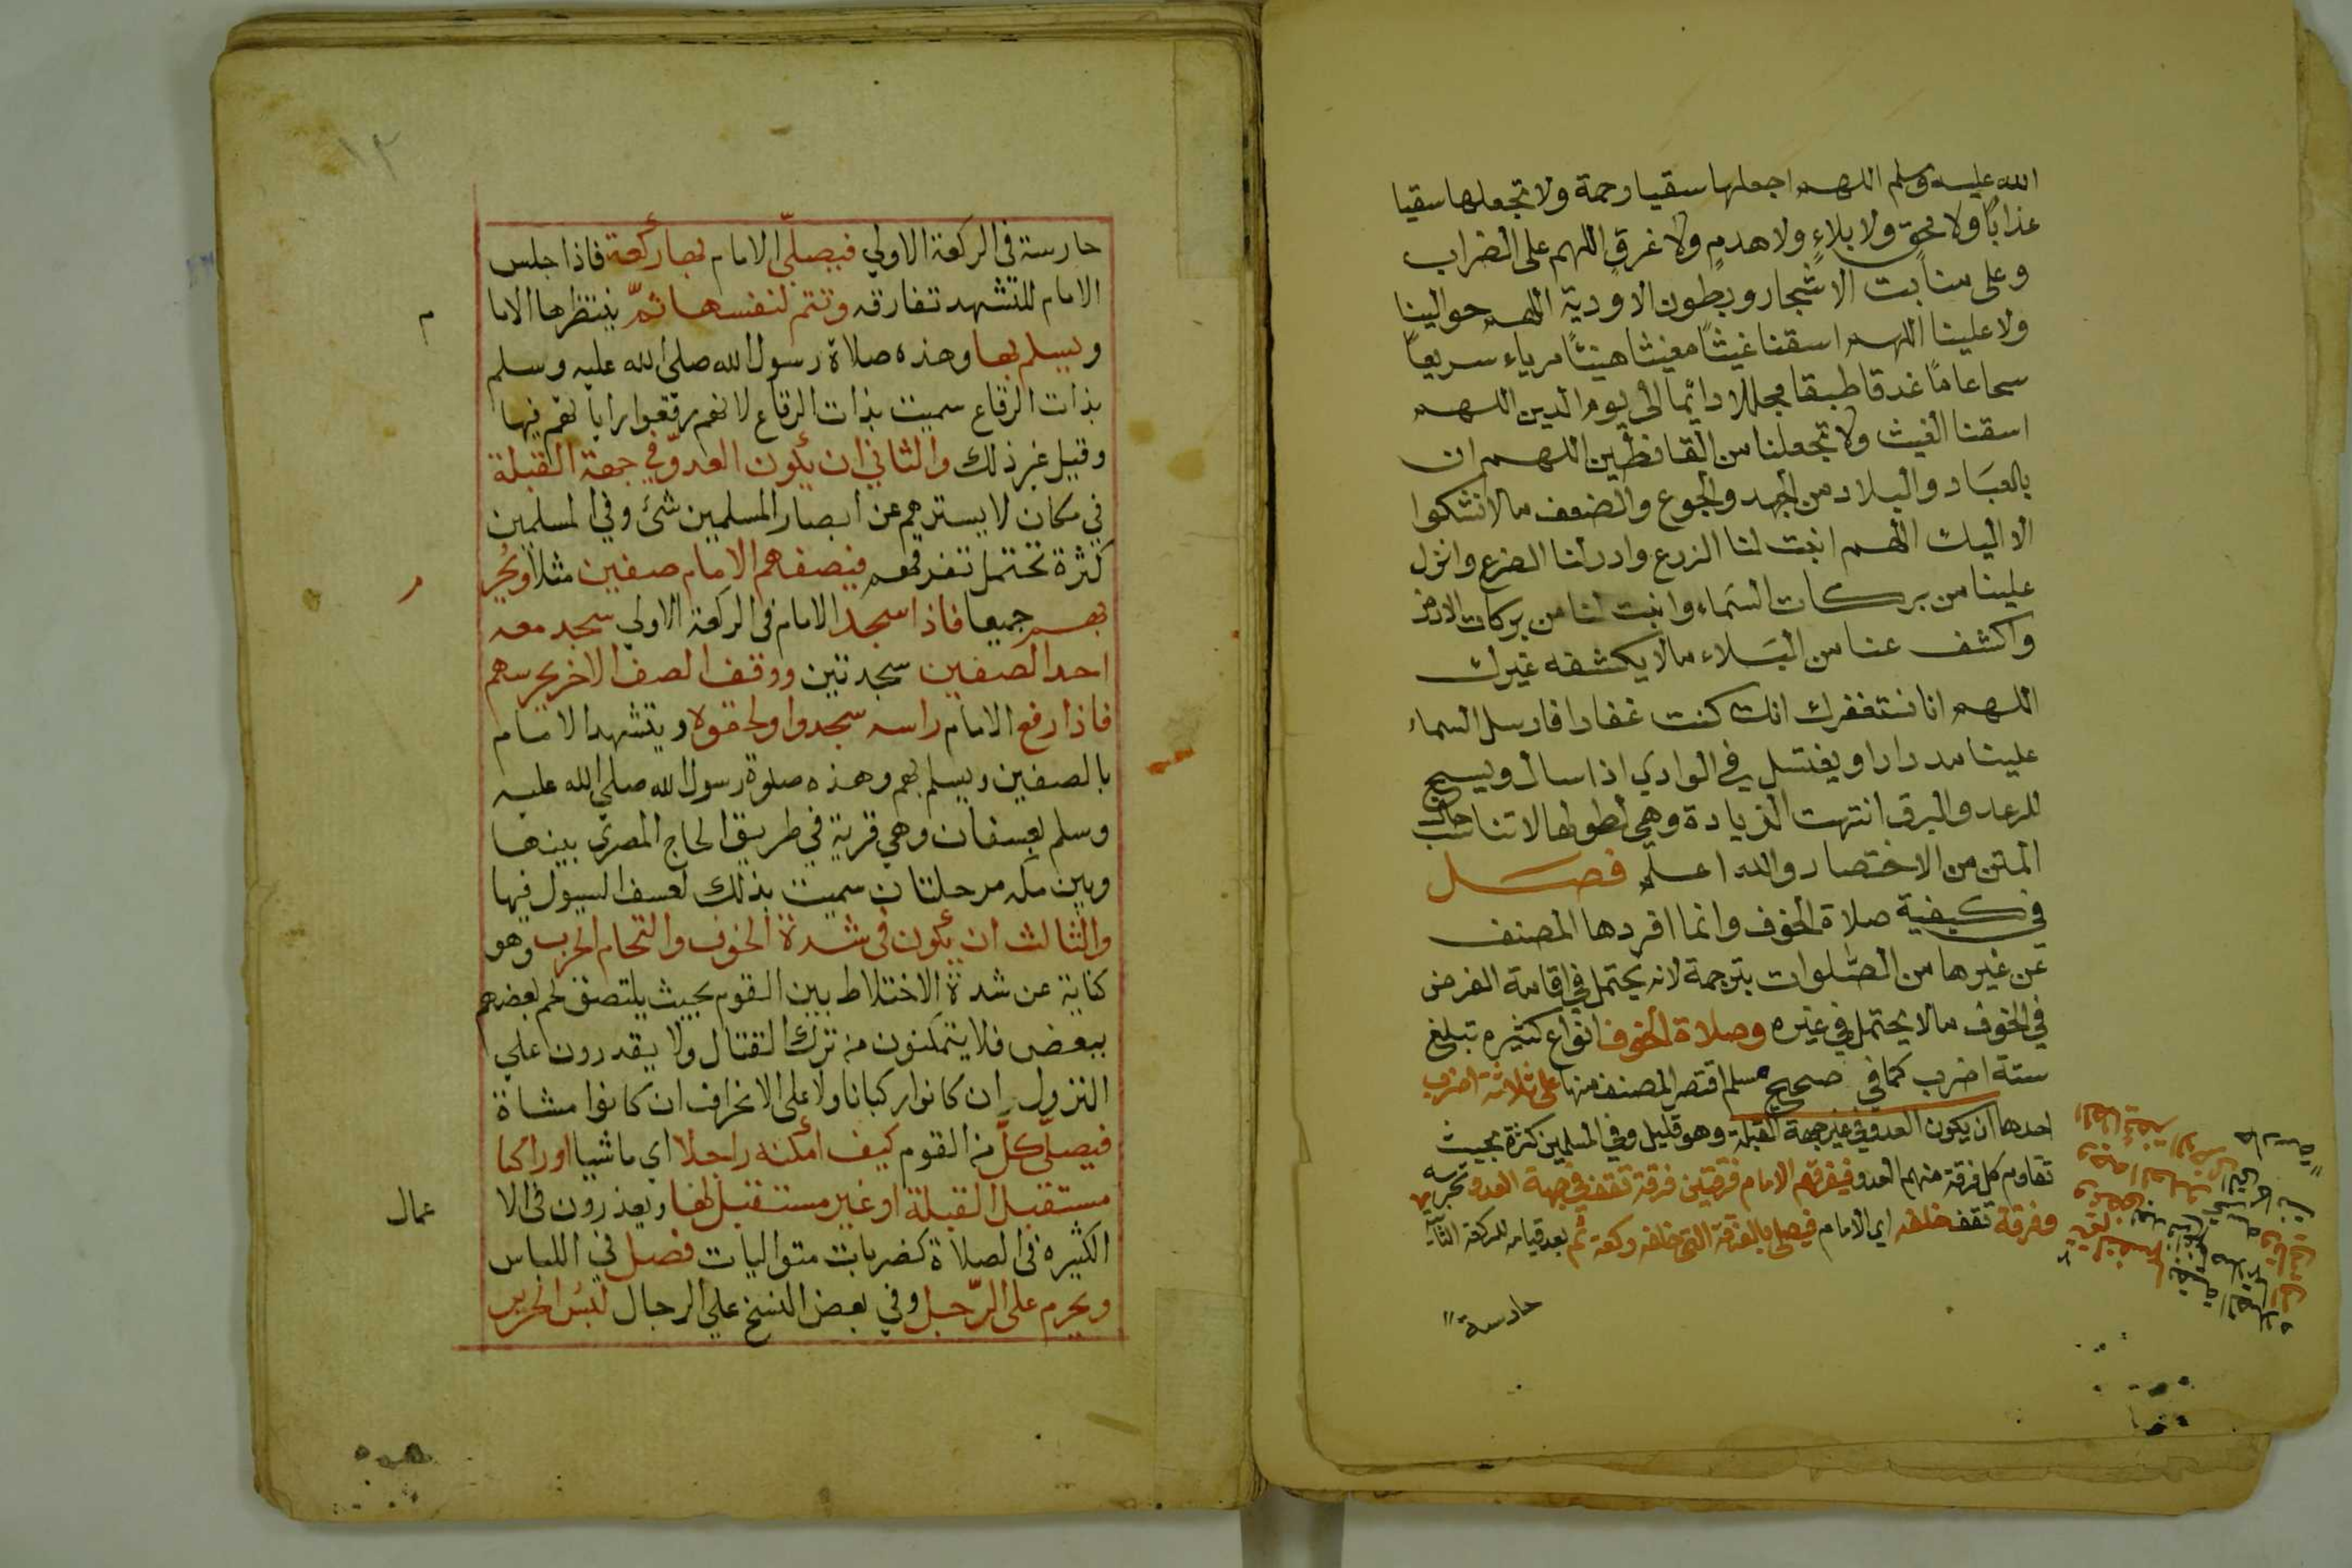 الله عليه وسلم اللهم اجعلها سقيا رحمة ولا تجعلها سقيا
عذابًا ولا محق ولا بلاءٍ ولا هدمٍ ولا غرقٍ اللهم على الضراب
وعلى منابت الاشجار وبطون الاودية اللهم حوالينا
ولا علينا اللهم اسقنا غيثًا مغيثا هنيئًا مرياء سريعًا
سحا عامًا غدقا طبقا مجللا دائما الى يوم الدين اللهم
اسقنا الغيث ولا تجعلنا من القانطين اللهم ان
بالعباد والبلاد من الجهد والجوع والضعف ما لا نشكوا
الا اليك اللهم انبت لنا الزرع وادر لنا الضرع وانزل
علينا من بركات السماء وانبت لنا من بركات الارض
واكشف عنا من البلاء ما لا يكشفه غيرك
اللهم انا نستغفرك انك كنت غفارا فارسل السماء
علينا مدرارا ويغتسل في الوادي اذا سال ويسبح
للرعد والبرق انتهت الزيادة وهي لطولها لا تناسب حال
المتن من الاختصار والله اعلم فصل
في كيفية صلاة الخوف وانما افردها المصنف
عن غيرها من الصلوات بترجمة لانه يحتمل في اقامة الفرض
في الخوف ما لا يحتمل في غيره وصلاة الخوف انواع كثيره تبلغ
ستة اضرب كما في صحيح مسلم اقتصر المصنف منها على ثلاثة اضرب
احدها ان يكون العدو في غير جهة القبلة وهو قليل وفي المسلمين كثرة بحيث
تقاوم كل فرقة منهم العدو فيفرقهم الامام فرقتين فرقة تقف في جهة العدو تحرسه
وفرقة تقف خلفه اي الامام فيصلي بالفرقة التي خلفه ركعة ثم بعد قيامه للركعة الثانية
حارسة
١٢
حارسة في الركعة الاولي فيصلّي الامام بها ركعة فاذا جلس
الامام للتشهد تفارقه وتتم لنفسها ثمّ ينتظرها الاما م
ويسلم بها وهذه صلاة رسول الله صلى الله عليه وسلم
بذات الرقاع سميت بذات الرقاع لانهم رقعوا راياتهم فيها
وقيل غير ذلك والثاني ان يكون العدوّ في جهة القبلة
في مكان لا يسترهم عن ابصار المسلمين شئ وفي المسلمين
كثرة تحتمل تفرقهم فيصفهم الامام صفين مثلا ويُحر م
بهم جميعا فاذا سجد الامام في الركعة الاولي سجد معه
احد الصفين سجدتين ووقف الصف الاخر يحرسهم
فاذا رفع الامام راسه سجدوا ولحقوه ويتشهد الامام
بالصفين ويسلم بهم وهذه صلوة رسول الله صلي الله عليه
وسلم بعسفان وهي قرية في طريق الحاج المصري بينها
وبين مكه مرحلتان سميت بذلك لعسف السيول فيها
والثالث ان يكون في شدة الخوف والتحام الحرب وهو
كناية عن شدة الاختلاط بين القوم بحيث يلتصق لحم بعضهم
ببعض فلا يتمكنون من ترك القتال ولا يقدرون علي
النزول ان كانوا ركبانا ولا على الانحراف ان كانوا مشاة
فيصلّى كلّ من القوم كيف امكنه راجلا اي ماشيا او راكبا
مستقبل القبلة او غير مستقبل لها ويعذرون في الا عمال
الكثيره في الصلاة كضربات متواليات فصل في اللباس
ويحرم على الرّجل وفي بعض النسخ علي الرجال لبس الحرير